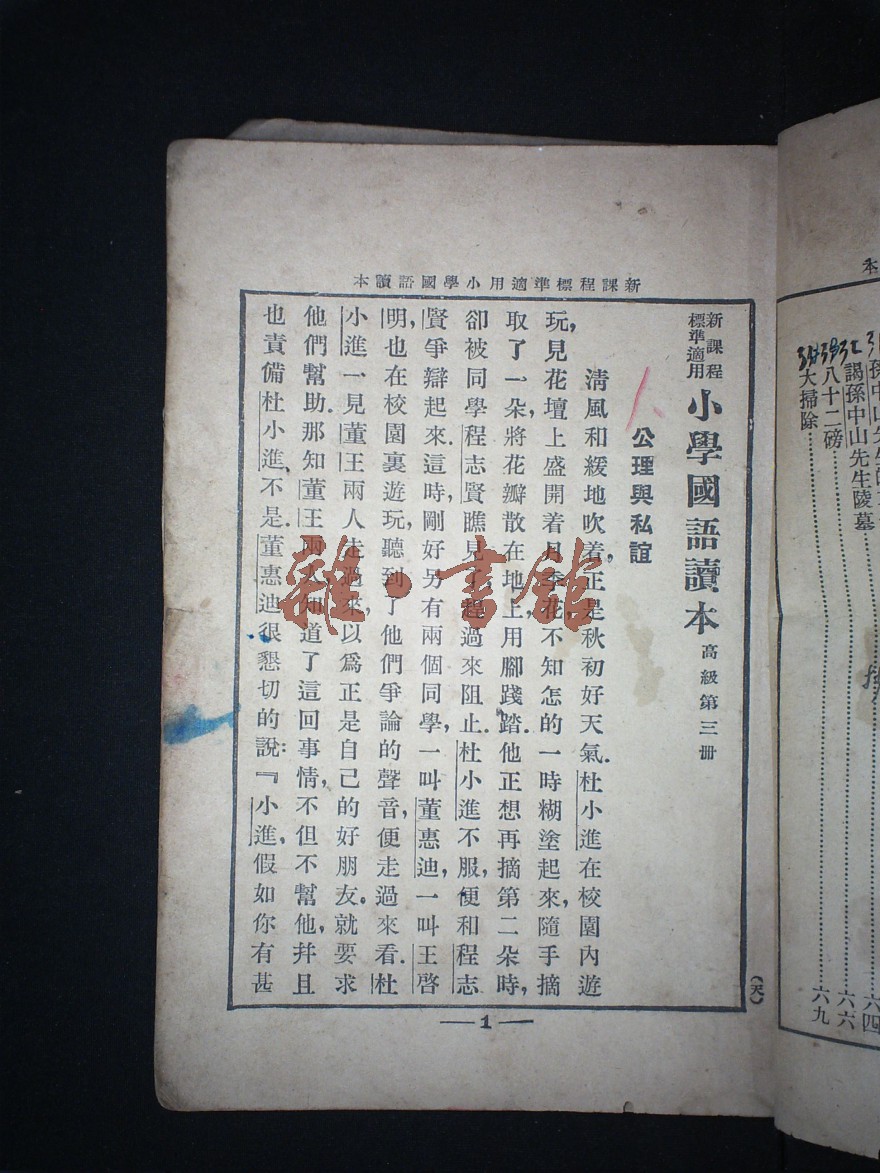 新課程標準適用小學國語讀本
新課程
標準適用
小學國語讀本
高級第三冊
公理與私誼
清風和緩地吹着，正是秋初好天氣．杜小進在校園內遊
玩，見花壇上盛開着月季花，不知怎的一時糊塗起來，隨手摘
取了一朵，將花瓣散在地上，用腳踐踏．他正想再摘第二朵時，
卻被同學程志賢瞧見了，趕過來阻止．杜小進不服，便和程志
賢爭辯起來．這時，剛好另有兩個同學，一叫董惠迪，一叫王啓
明，也在校園裏遊玩，聽到了他們爭論的聲音，便走過來看．杜
小進一見董王兩人走過來，以爲正是自己的好朋友．就要求
他們幫助．那知董王兩人知道了這回事情，不但不幫他，幷且
也責備杜小進不是．董惠迪很懇切的說：『小進，假如你有甚
(天)
1
本
謁孫中山先生陵墓
六四
八十二磅
六六
大掃除
六九
雜·書館